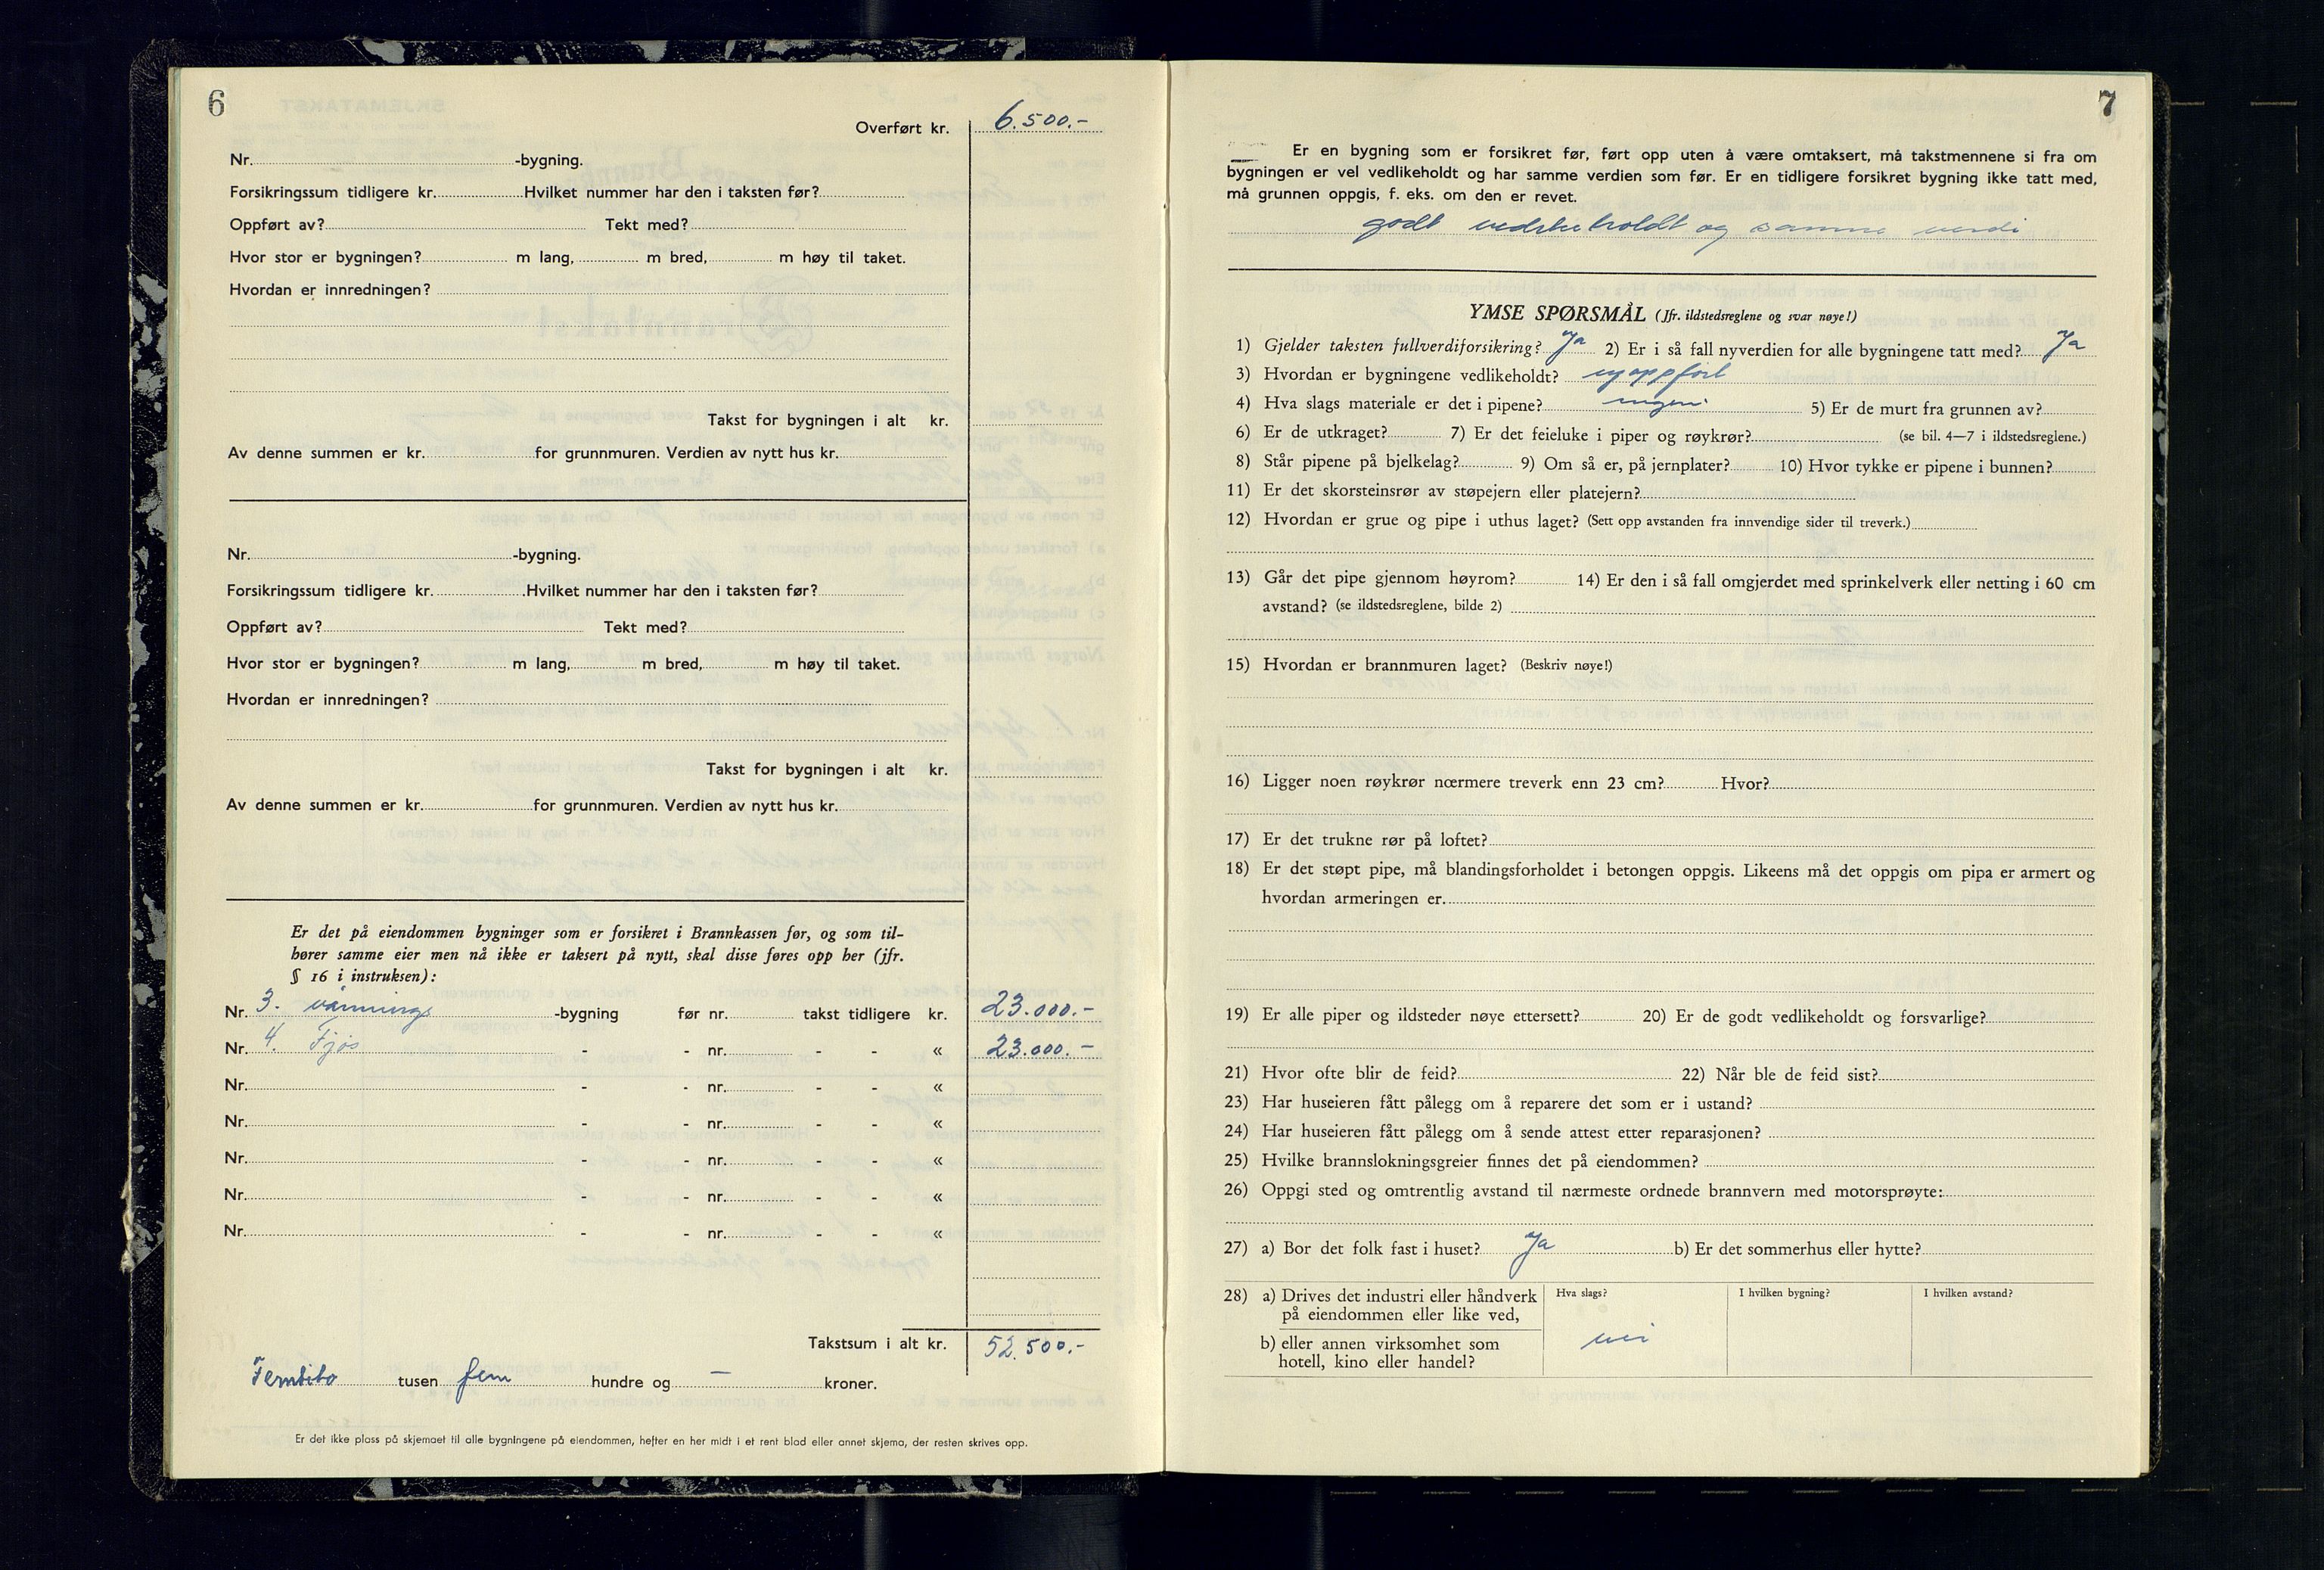 6
Overført kr. 6.500.-
Nr. -bygning.
Forsikringssum tidligere kr. Hvilket nummer har den i taksten før?
Oppført av? Tekt med?
Hvor stor er bygningen? m lang, m bred, m høy til taket.
Hvordan er innredningen?
Takst for bygningen i alt kr.
Av denne summen er kr. for grunnmuren. Verdien av nytt hus kr.
Nr. -bygning.
Forsikringssum tidligere kr. Hvilket nummer har den i taksten før?
Oppført av? Tekt med?
Hvor stor er bygningen? m lang, m bred, m høy til taket.
Hvordan er innredningen?
Takst for bygningen i alt kr.
Av denne summen er kr. for grunnmuren. Verdien av nytt hus kr.
Er det på eiendommen bygninger som er forsikret i Brannkassen før, og som til-
hører samme eier men nå ikke er taksert på nytt, skal disse føres opp her (jfr.
§ 16 i instruksen):
Nr. 3. vånnings -bygning før nr. takst tidligere kr. 23.000.-
Nr. 4. Fjøs - - nr. - - « 23.000.-
Nr. - - nr. - - «
Nr. - - nr. - - «
Nr. - - nr. - - «
Nr. - - nr. - - «
Nr. - - nr. - - «
Takstsum i alt kr. 52.500.-
Femtito tusen fem hundre og — kroner.
Er det ikke plass på skjemaet til alle bygningene på eiendommen, hefter en her midt i et rent blad eller annet skjema, der resten skrives opp.
7
Er en bygning som er forsikret før, ført opp uten å være omtaksert, må takstmennene si fra om
bygningen er vel vedlikeholdt og har samme verdien som før. Er en tidligere forsikret bygning ikke tatt med,
må grunnen oppgis, f. eks. om den er revet.
godt vedlikeholdt og samme verdi
YMSE SPØRSMÅL (Jfr. ildstedsreglene og svar nøye!)
1) Gjelder taksten fullverdiforsikring? Ja 2) Er i så fall nyverdien for alle bygningene tatt med? Ja
3) Hvordan er bygningene vedlikeholdt? nyoppført
4) Hva slags materiale er det i pipene? ingen. 5) Er de murt fra grunnen av?
6) Er de utkraget? 7) Er det feieluke i piper og røykrør? (se bil. 4—7 i ildstedsreglene.)
8) Står pipene på bjelkelag? 9) Om så er, på jernplater? 10) Hvor tykke er pipene i bunnen?
11) Er det skorsteinsrør av støpejern eller platejern?
12) Hvordan er grue og pipe i uthus laget? (Sett opp avstanden fra innvendige sider til treverk.)
13) Går det pipe gjennom høyrom? 14) Er den i så fall omgjerdet med sprinkelverk eller netting i 60 cm
avstand? (se ildstedsreglene, bilde 2)
15) Hvordan er brannmuren laget? (Beskriv nøye!)
16) Ligger noen røykrør nærmere treverk enn 23 cm? Hvor?
17) Er det trukne rør på loftet?
18) Er det støpt pipe, må blandingsforholdet i betongen oppgis. Likeens må det oppgis om pipa er armert og
hvordan armeringen er.
19) Er alle piper og ildsteder nøye ettersett? 20) Er de godt vedlikeholdt og forsvarlige?
21) Hvor ofte blir de feid? 22) Når ble de feid sist?
23) Har huseieren fått pålegg om å reparere det som er i ustand?
24) Har huseieren fått pålegg om å sende attest etter reparasjonen?
25) Hvilke brannslokningsgreier finnes det på eiendommen?
26) Oppgi sted og omtrentlig avstand til nærmeste ordnede brannvern med motorsprøyte:
27) a) Bor det folk fast i huset? Ja b) Er det sommerhus eller hytte?
28) a) Drives det industri eller håndverk Hva slags? I hvilken bygning? I hvilken avstand?
på eiendommen eller like ved,
b) eller annen virksomhet som nei
hotell, kino eller handel?